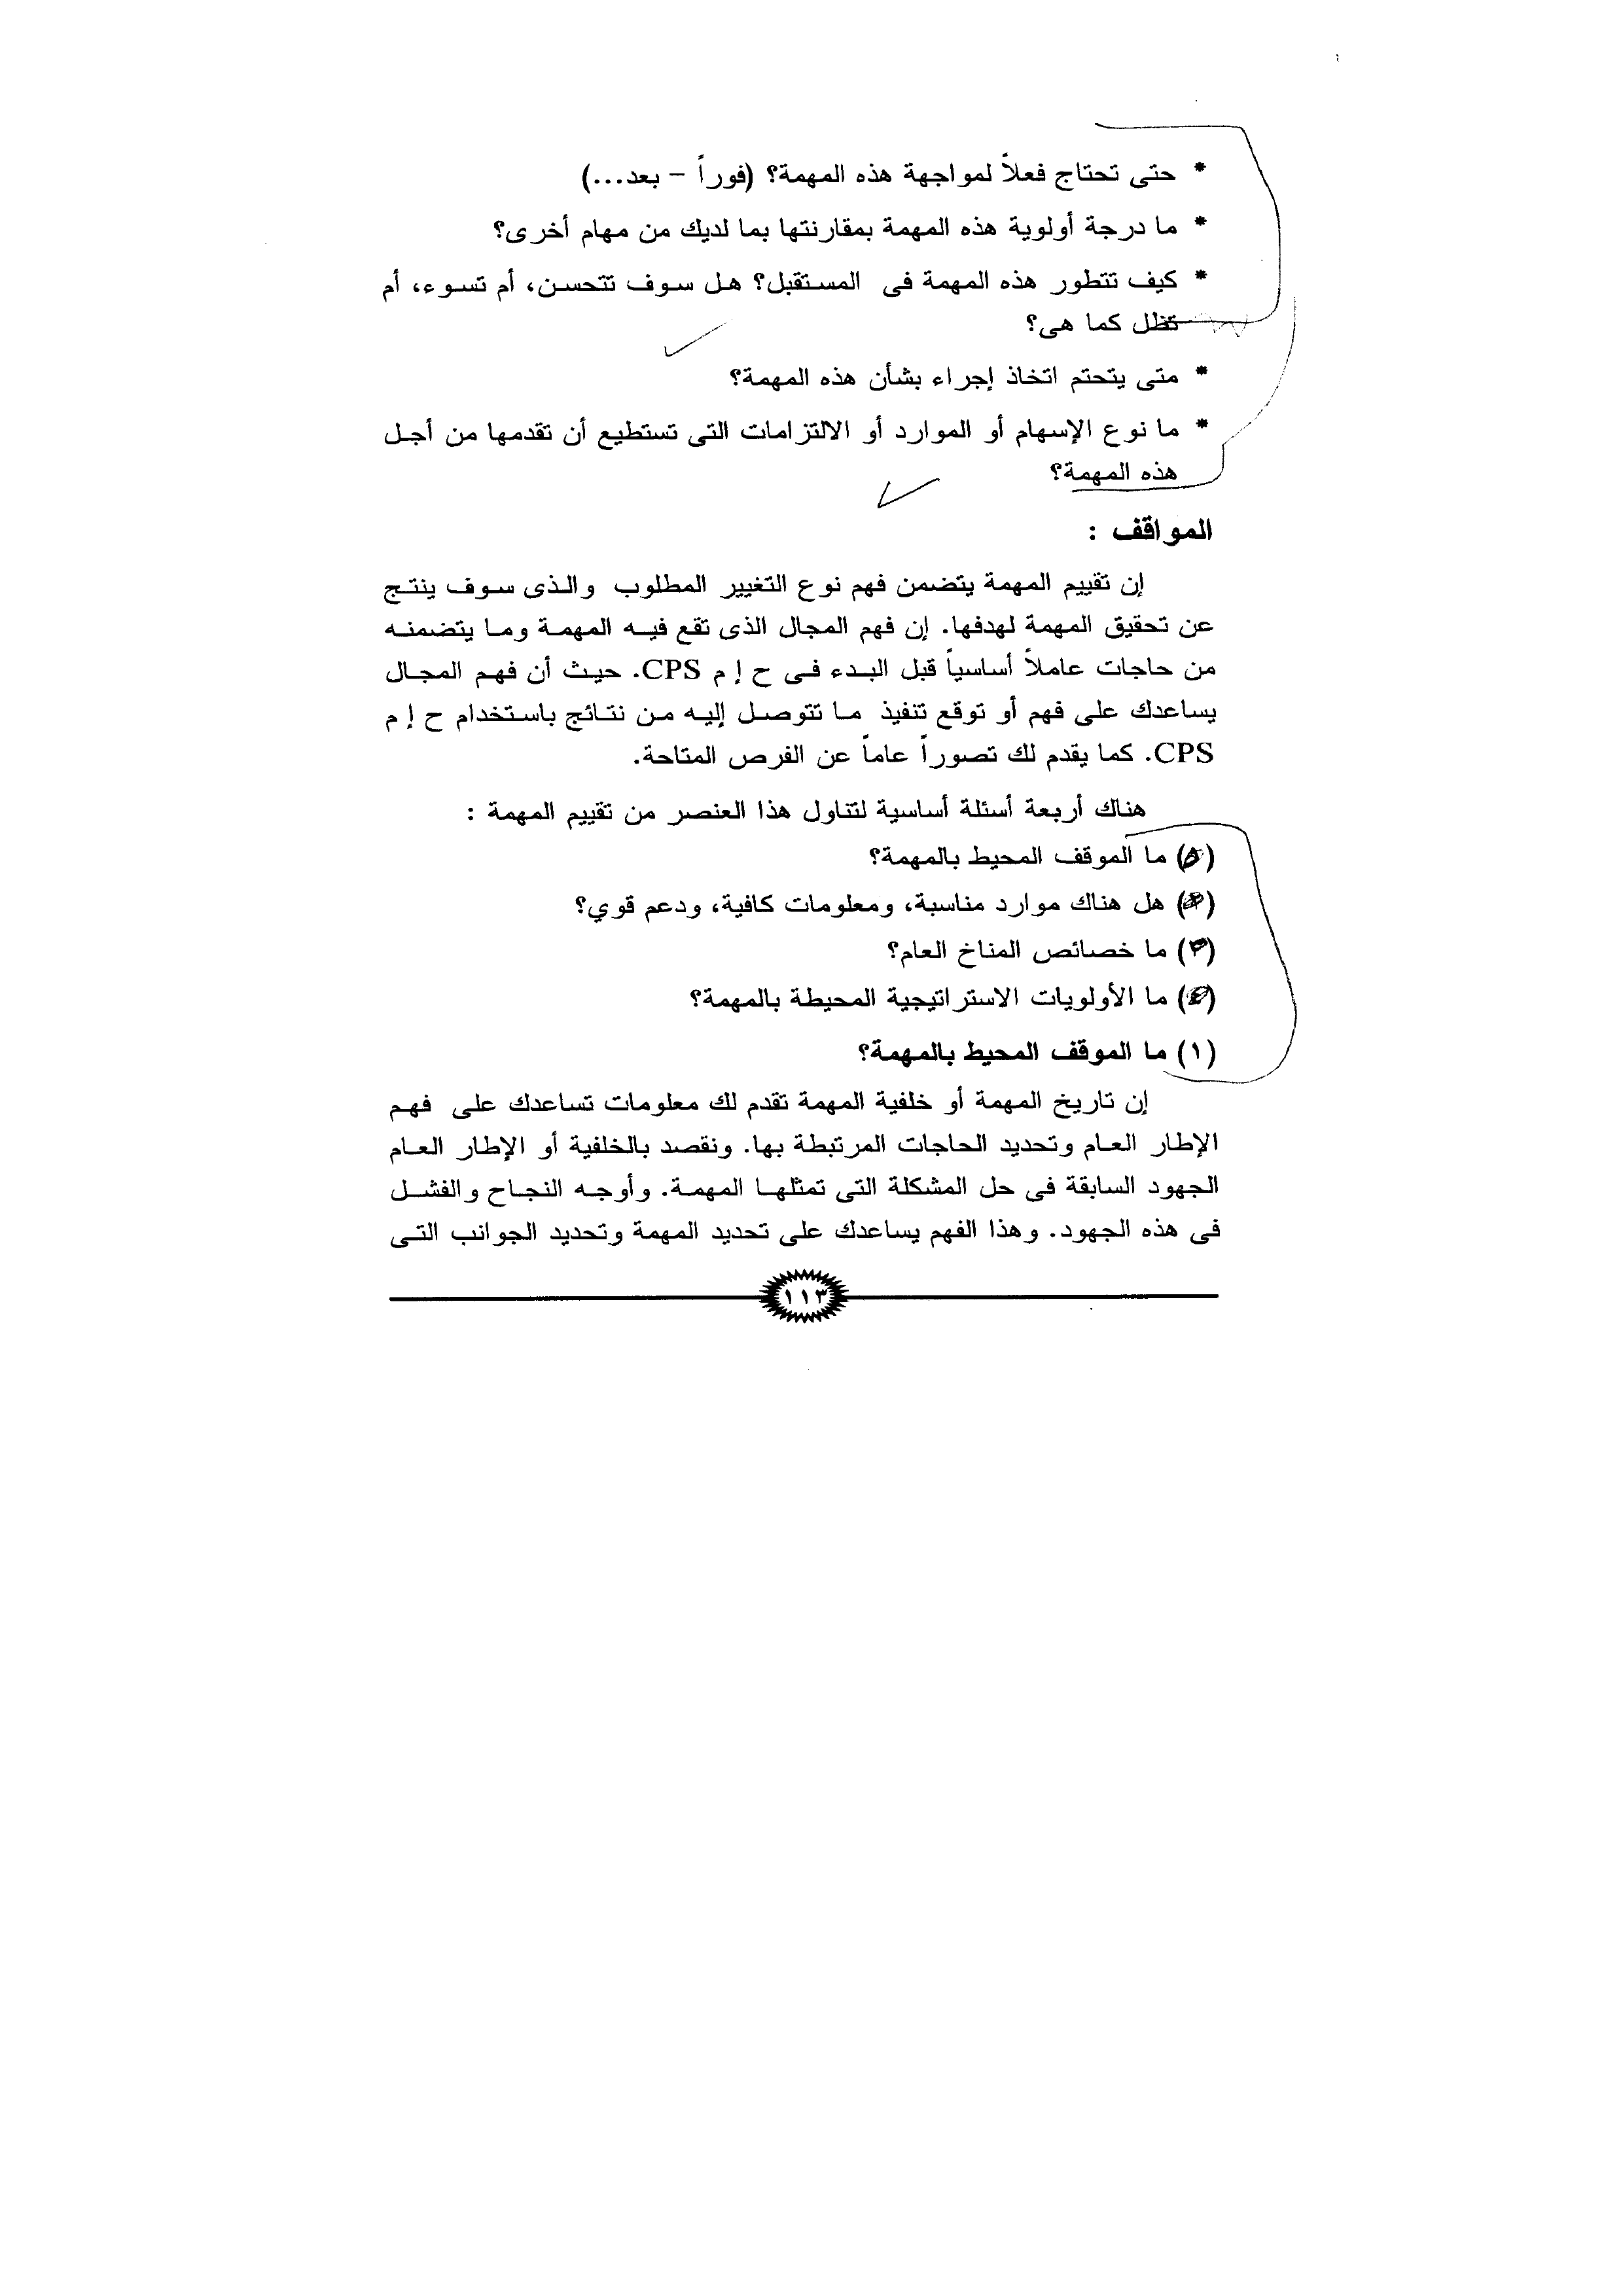 * حتى تحتاج فعلاً لمواجهة هذه المهمة؟ (فوراً – بعد...)
* ما درجة أولوية هذه المهمة بمقارنتها بما لديك من مهام أخرى؟
* كيف تتطور هذه المهمة فى المستقبل؟ هل سوف تتحسن، أم تسوء، أم
تظل كما هى؟
* متى يتحتم اتخاذ إجراء بشأن هذه المهمة؟
* ما نوع الإسهام أو الموارد أو الالتزامات التى تستطيع أن تقدمها من أجل
هذه المهمة؟
المواقف :
إن تقييم المهمة يتضمن فهم نوع التغيير المطلوب والذى سوف ينتج
عن تحقيق المهمة لهدفها. إن فهم المجال الذى تقع فيه المهمة وما يتضمنه
من حاجات عاملاً أساسياً قبل البدء فى ح إ م CPS. حيث أن فهم المجال
يساعدك على فهم أو توقع تنفيذ ما تتوصل إليه من نتائج باستخدام ح إ م
CPS. كما يقدم لك تصوراً عاماً عن الفرص المتاحة.
هناك أربعة أسئلة أساسية لتناول هذا العنصر من تقييم المهمة :
ما الموقف المحيط بالمهمة؟
هل هناك موارد مناسبة، ومعلومات كافية، ودعم قوي؟
ما خصائص المناخ العام؟
ما الأولويات الاستراتيجية المحيطة بالمهمة؟
(١) ما الموقف المحيط بالمهمة؟
إن تاريخ المهمة أو خلفية المهمة تقدم لك معلومات تساعدك على فهم
الإطار العام وتحديد الحاجات المرتبطة بها. ونقصد بالخلفية أو الإطار العام
الجهود السابقة فى حل المشكلة التى تمثلها المهمة. وأوجه النجاح والفشل
فى هذه الجهود. وهذا الفهم يساعدك على تحديد المهمة وتحديد الجوانب التى
١١٣